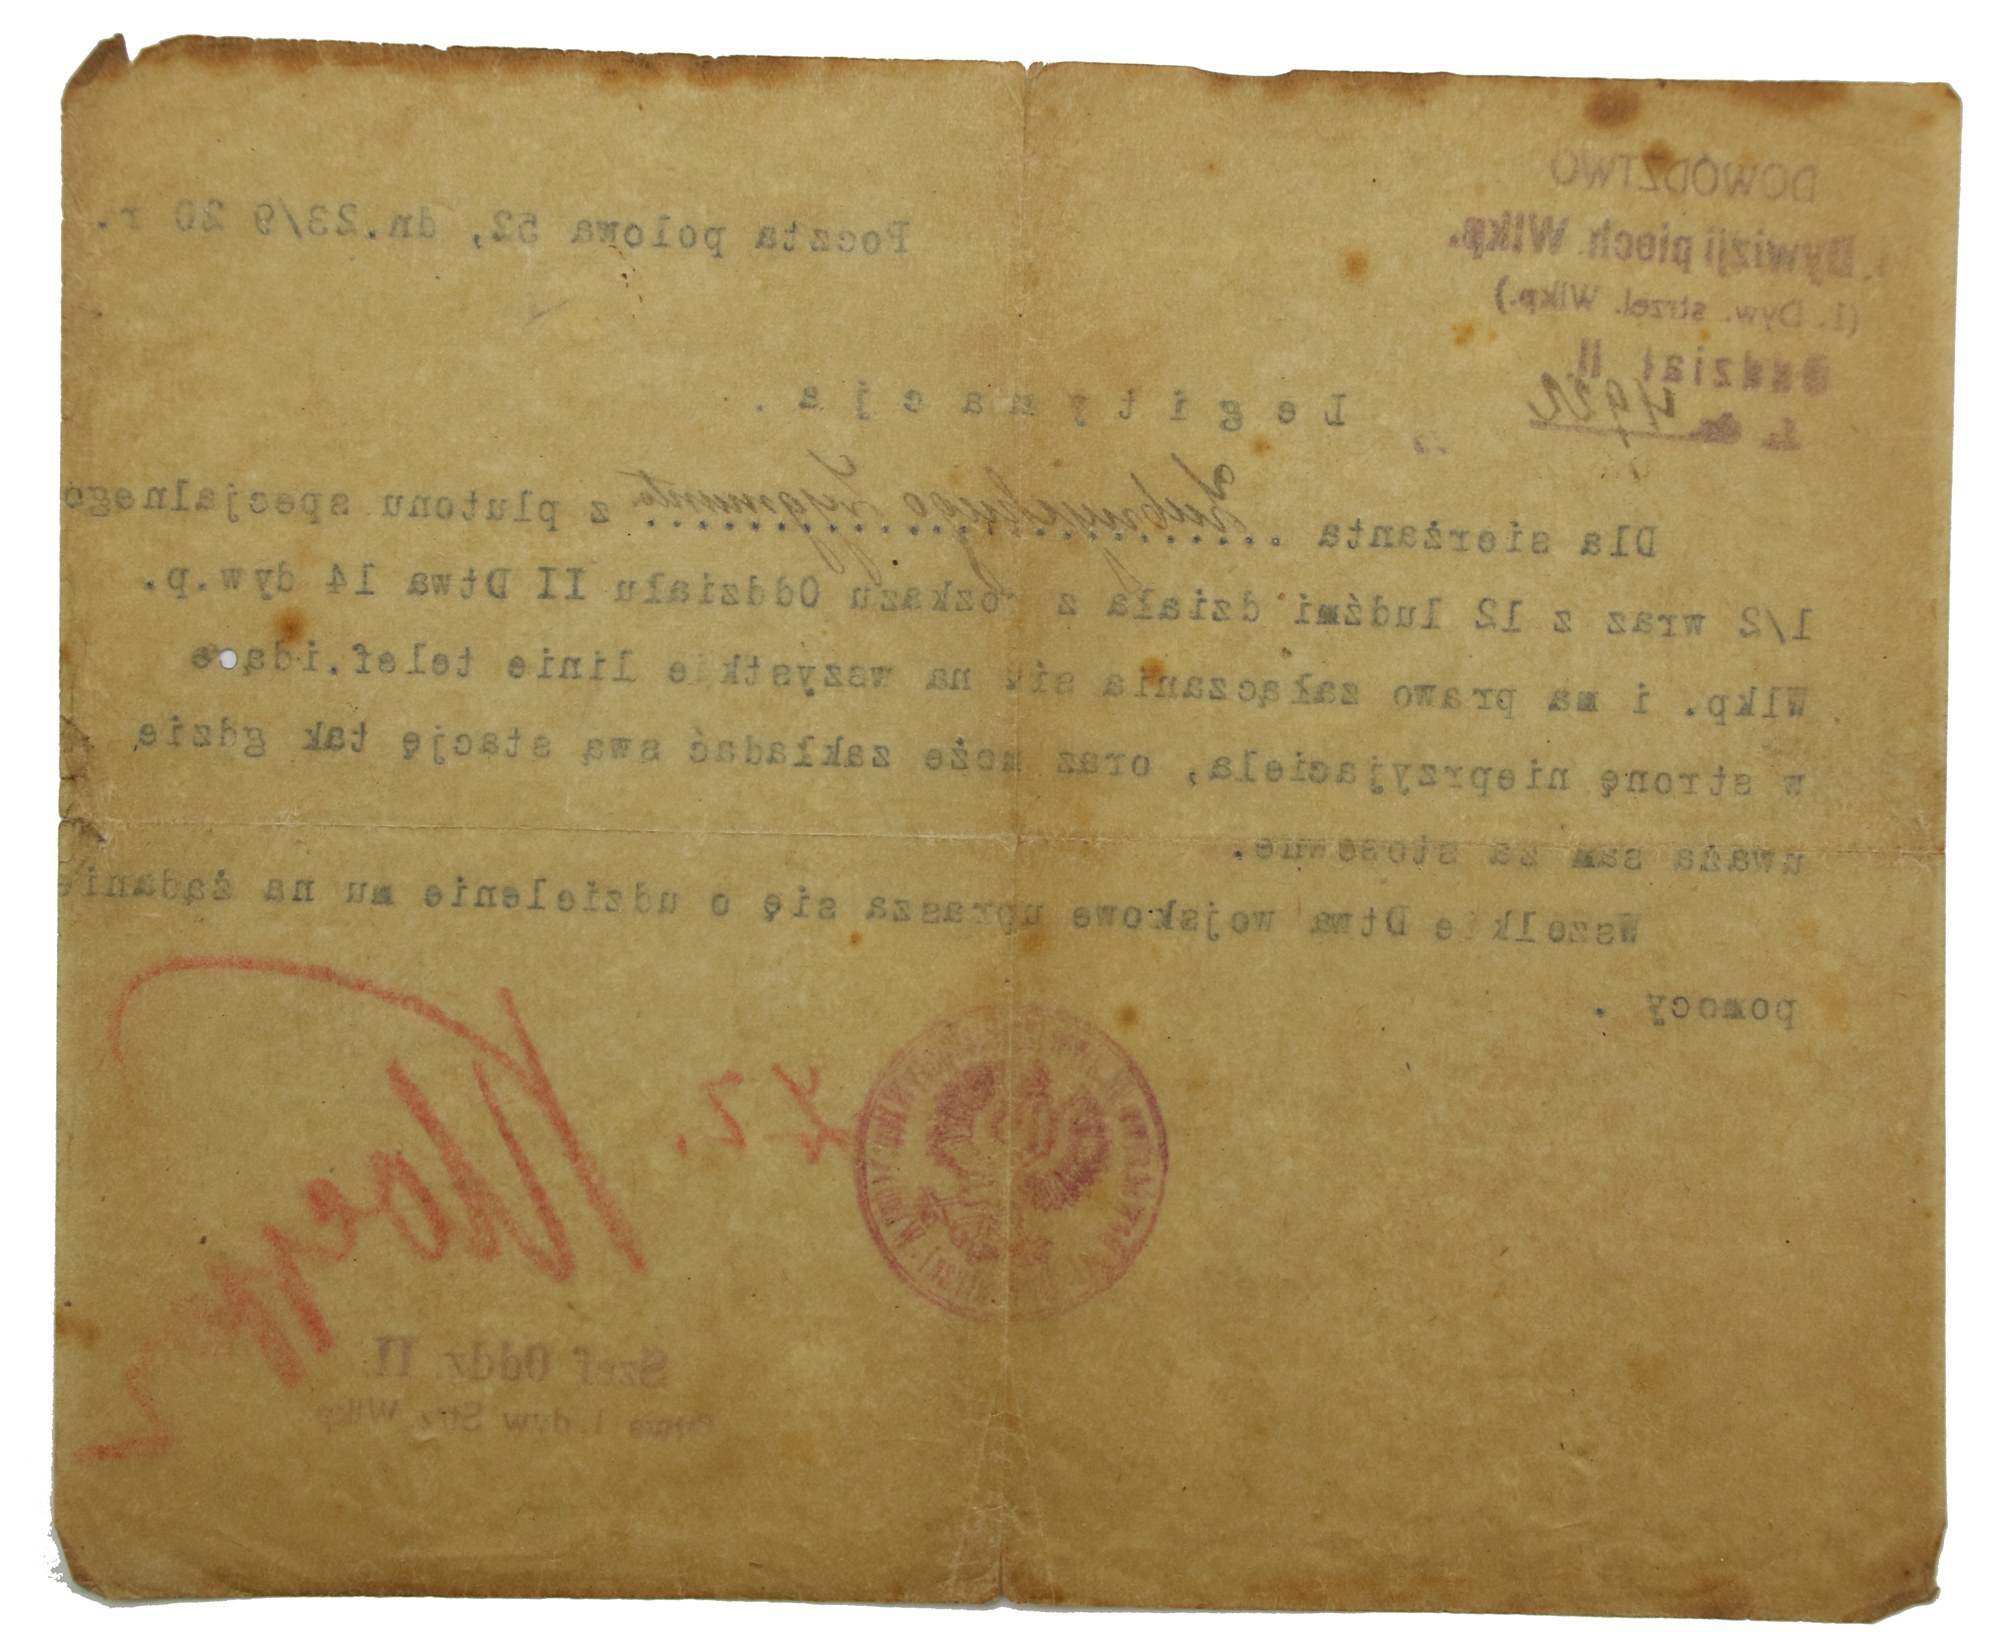 DOWÓDZTWO
Dywizji piech Wlkp.
(1. Dyw. strzel. Wlkp.)
Oddział II.
L. dz. 4922
Poczta polowa 52, dn.23/9 20 r.
Legitymacja.
Dla sierżanta .................... Zygmunta z plutonu specjalnego
1/2 wraz z 12 ludźmi działa z rozkazu Oddziału II Dtwa 14 dyw.p.
Wlkp. i ma prawo załączania się na wszystkie linie telef.idące
w stronę nieprzyjaciela, oraz może zakładać swą stację tak gdzie
uważa sam za stosowne.
Wszelkie Dtwa wojskowe uprasza się o udzielenie mu na żądanie
pomocy .
Szef Oddz. II
Dtwa 1. dyw Strz. Wlkp